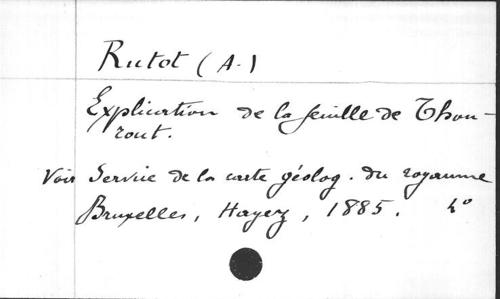 Rutot (A.)
Explication de la feuille de Thou-
rout.
Voir Service de la carte géolog. du royaume
Bruxelles, Hayez, 1885. 4°